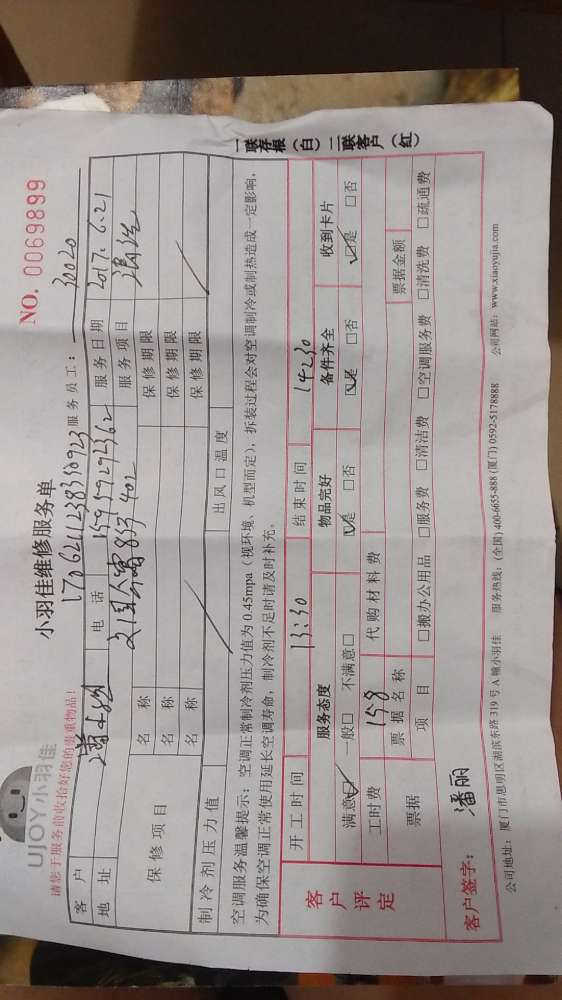 UJOY小羽佳
小羽佳维修服务单
NO. 0069899
请您于服务前收拾好您的贵重物品！
服务员工：30020
客户
电话 15959292362
服务日期 2017.6.21
地址
402
服务项目 清洗
保修项目
名称
保修期限
名称
保修期限
名称
保修期限
制冷剂压力值
出风口温度
空调服务温馨提示：空调正常制冷剂压力值为0.45mpa（视环境、机型而定），拆装过程会对空调制冷或制热造成一定影响，
为确保空调正常使用延长空调寿命，制冷剂不足时请及时补充。
客户评定
开工时间 13:30 结束时间 14:30
服务态度 物品完好 备件齐全 收到卡片
满意☑ 一般□ 不满意□ ☑是 □否 ☑是 □否 ☑是 □否
工时费 158 代购材料费
票据 票据名称 票据金额
项目 □搬办公用品 □服务费 □清洁费 □空调服务费 □清洗费 □疏通费
客户签字：潘丽
公司地址：厦门市思明区湖滨东路319号A幢小羽佳 服务热线：(全国) 400-6655-888 (厦门) 0592-5178888 公司网站：www.xiaoyujia.com
一联存根（白） 二联客户（红）